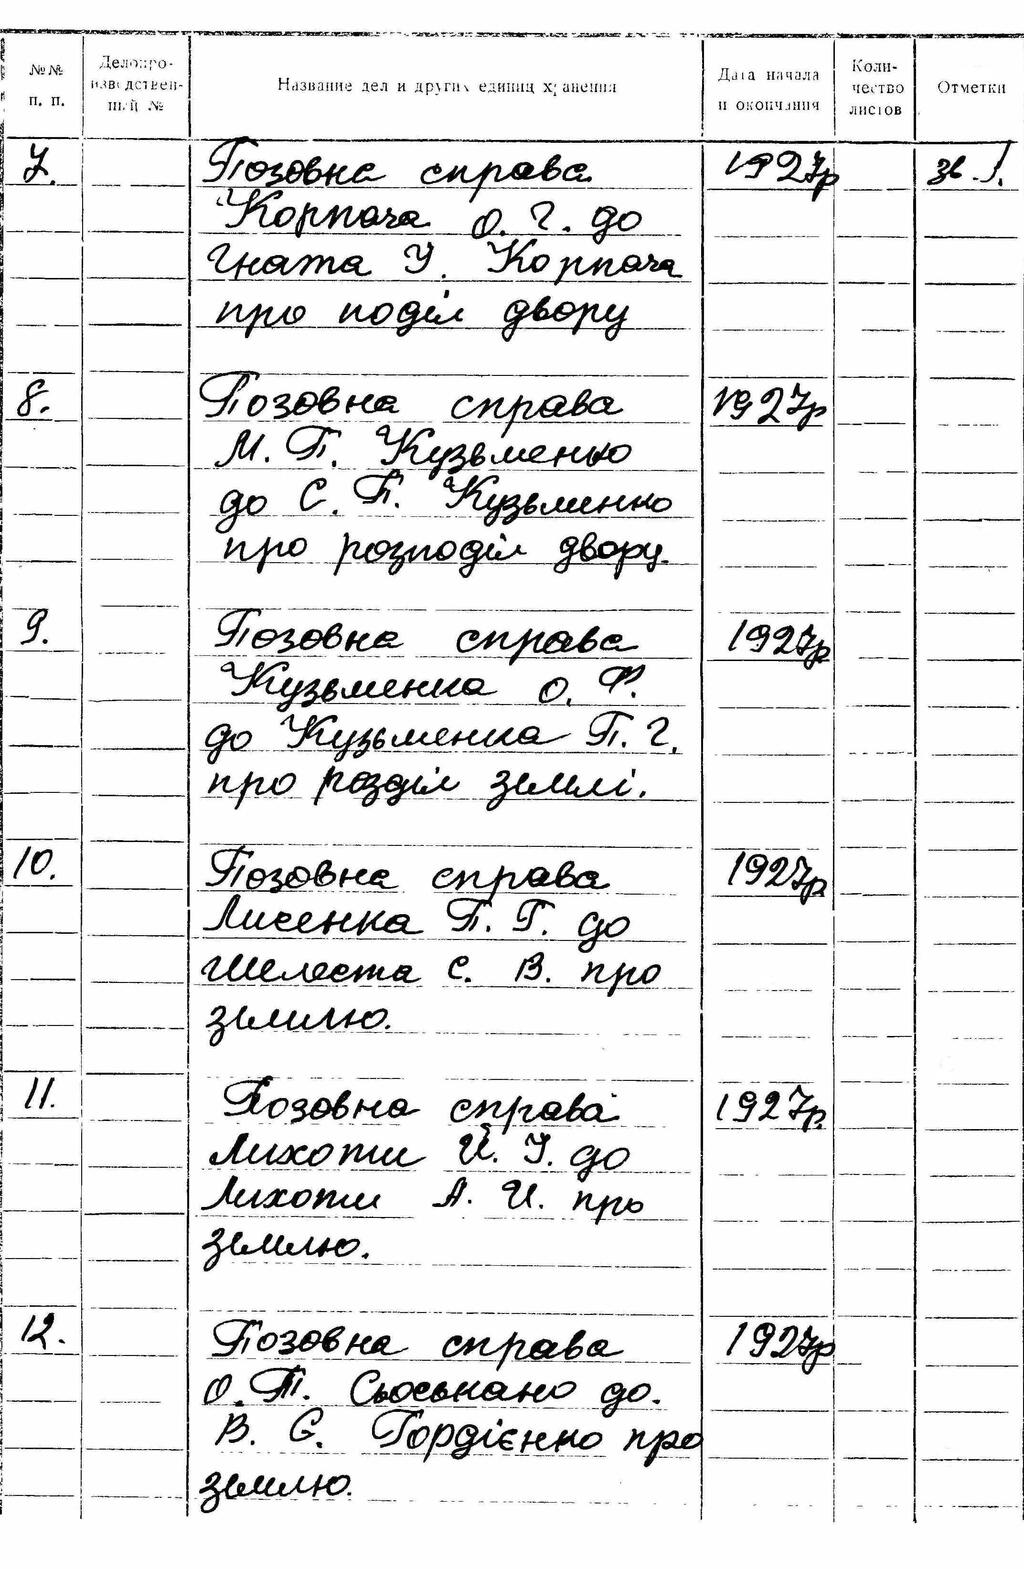 №№ п. п.
Делопро-
изводствен-
ный №
Название дел и других единиц хранения
Дата начала
и окончания
Коли-
чество
листов
Отметки
7. Позовна справа 1927р зв. 1.
Корпача О. Г. до
Гната У. Корпача
про поділ двору
8. Позовна справа 1927р
М. П. Кузьменко
до С. П. Кузьменко
про розподіл двору.
9. Позовна справа 1927р
Кузьменка О. Ф.
до Кузьменка П. Г.
про розділ землі.
10. Позовна справа 1927р
Лисенка П. Г. до
Шелеста С. В. про
землю.
11. Позовна справа 1927р.
Лихоти Й. У. до
Лихоти А. И. про
землю.
12. Позовна справа 1927р
О. П. до.
В. Є. Гордієнко про
землю.